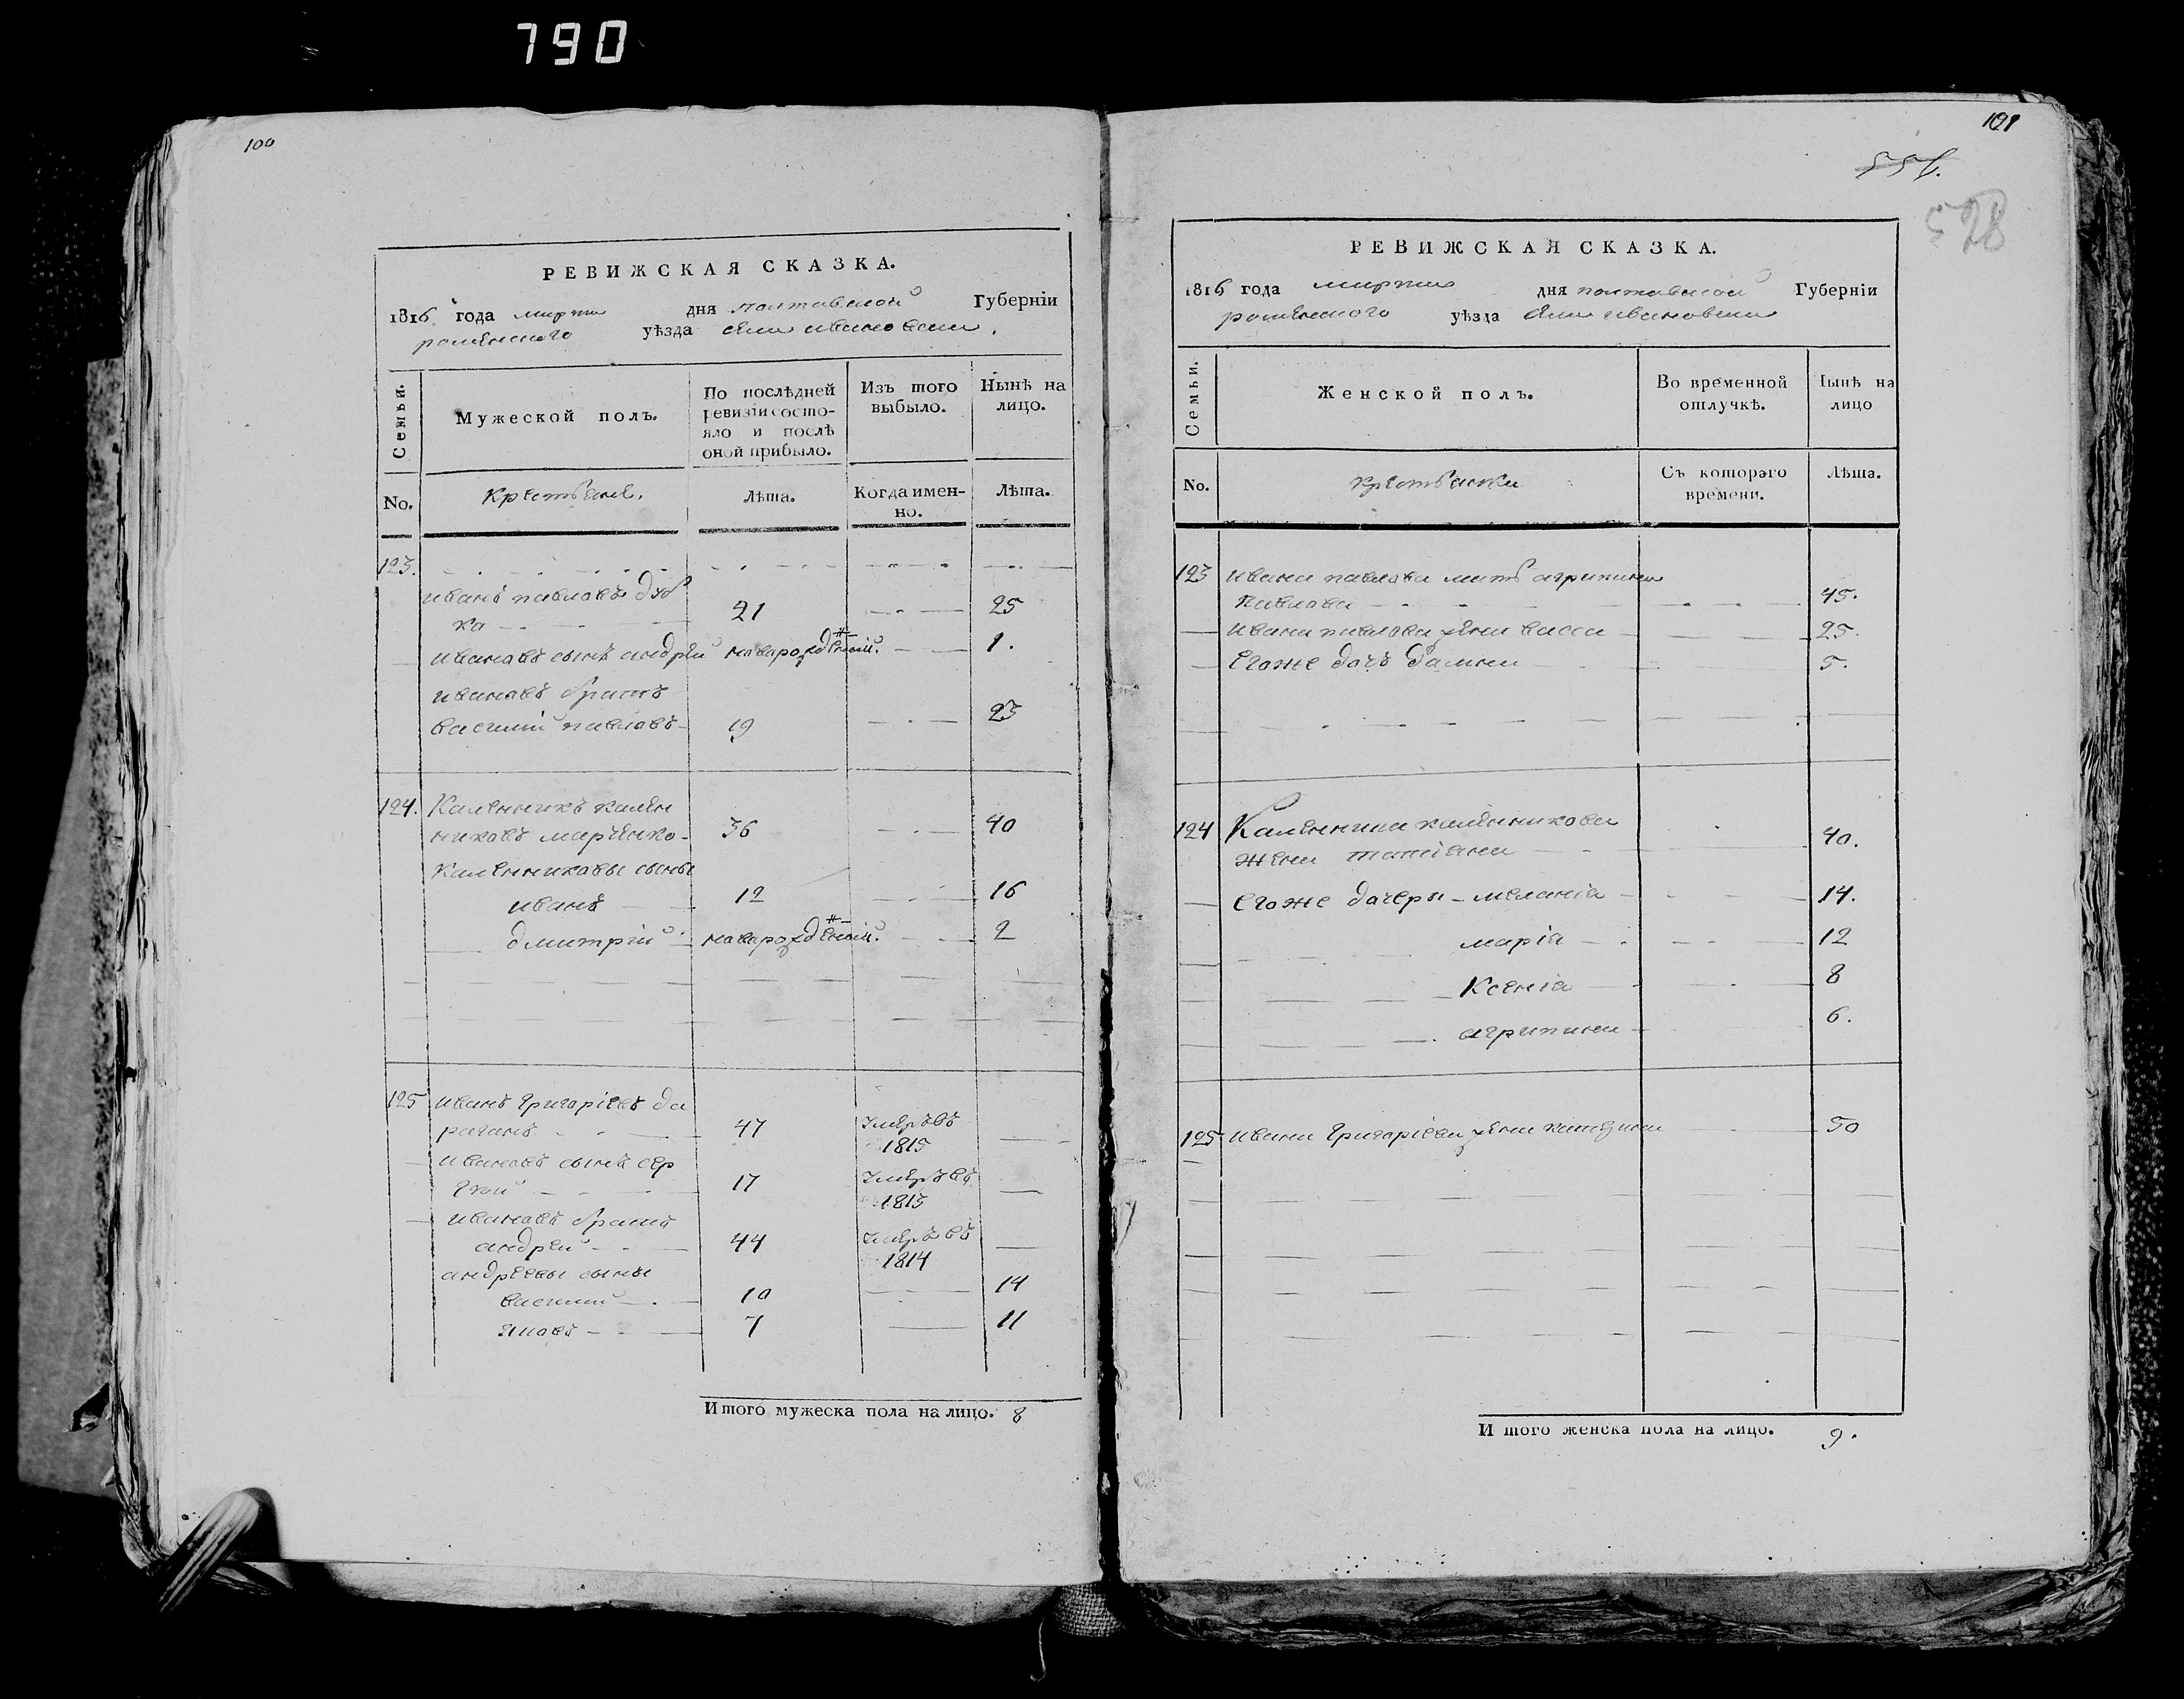 790
100
РЕВИЖСКАЯ СКАЗКА.
1816 года марта дня полтавской Губерніи
роменского уѣзда села ивановки.
Семьи.
Мужеской полъ.
По послѣдней ревизіи состояло и послѣ оной прибыло.
Изъ того выбыло.
Нынѣ на лицо.
No.
Крестьяне.
Лѣта.
Когда именно.
Лѣта.
123.
иванъ павловъ дуб
ка 21 25
ивановъ сынъ андрей новорожденный. 1.
ивановъ братъ
василий павловъ 19 23
124. Каленникъ кален
никовъ марченко 36 40
Каленниковы сыны
иванъ 12 16
дмитрий новорожденный. 2
125 иванъ григоріевъ да
раганъ 47 умеръ въ 1815
ивановъ сынъ сер
гей 17 умеръ въ 1813
ивановъ братъ
андрей 44 умеръ въ 1814
андреевы сыны
василий 10 14
яковъ 7 11
Итого мужеска пола на лицо. 8
101
528
РЕВИЖСКАЯ СКАЗКА.
1816 года марта дня полтавской Губерніи
роменского уѣзда села ивановки
Семьи.
Женской полъ.
Во временной отлучкѣ.
Нынѣ на лицо
No.
крестьянки
Съ котораго времени.
Лѣта.
123 ивана павлова мать агрипина
Павлова 45.
ивана павлова жена васса 25.
Егоже дочь домна 5.
124 Каленника каленникова
жена татіана 40.
Егоже дочери меланія 14.
марія 12
Ксенія 8
агрипина 6.
125 ивана григоріева жена 50
Итого женска пола на лицо. 9.